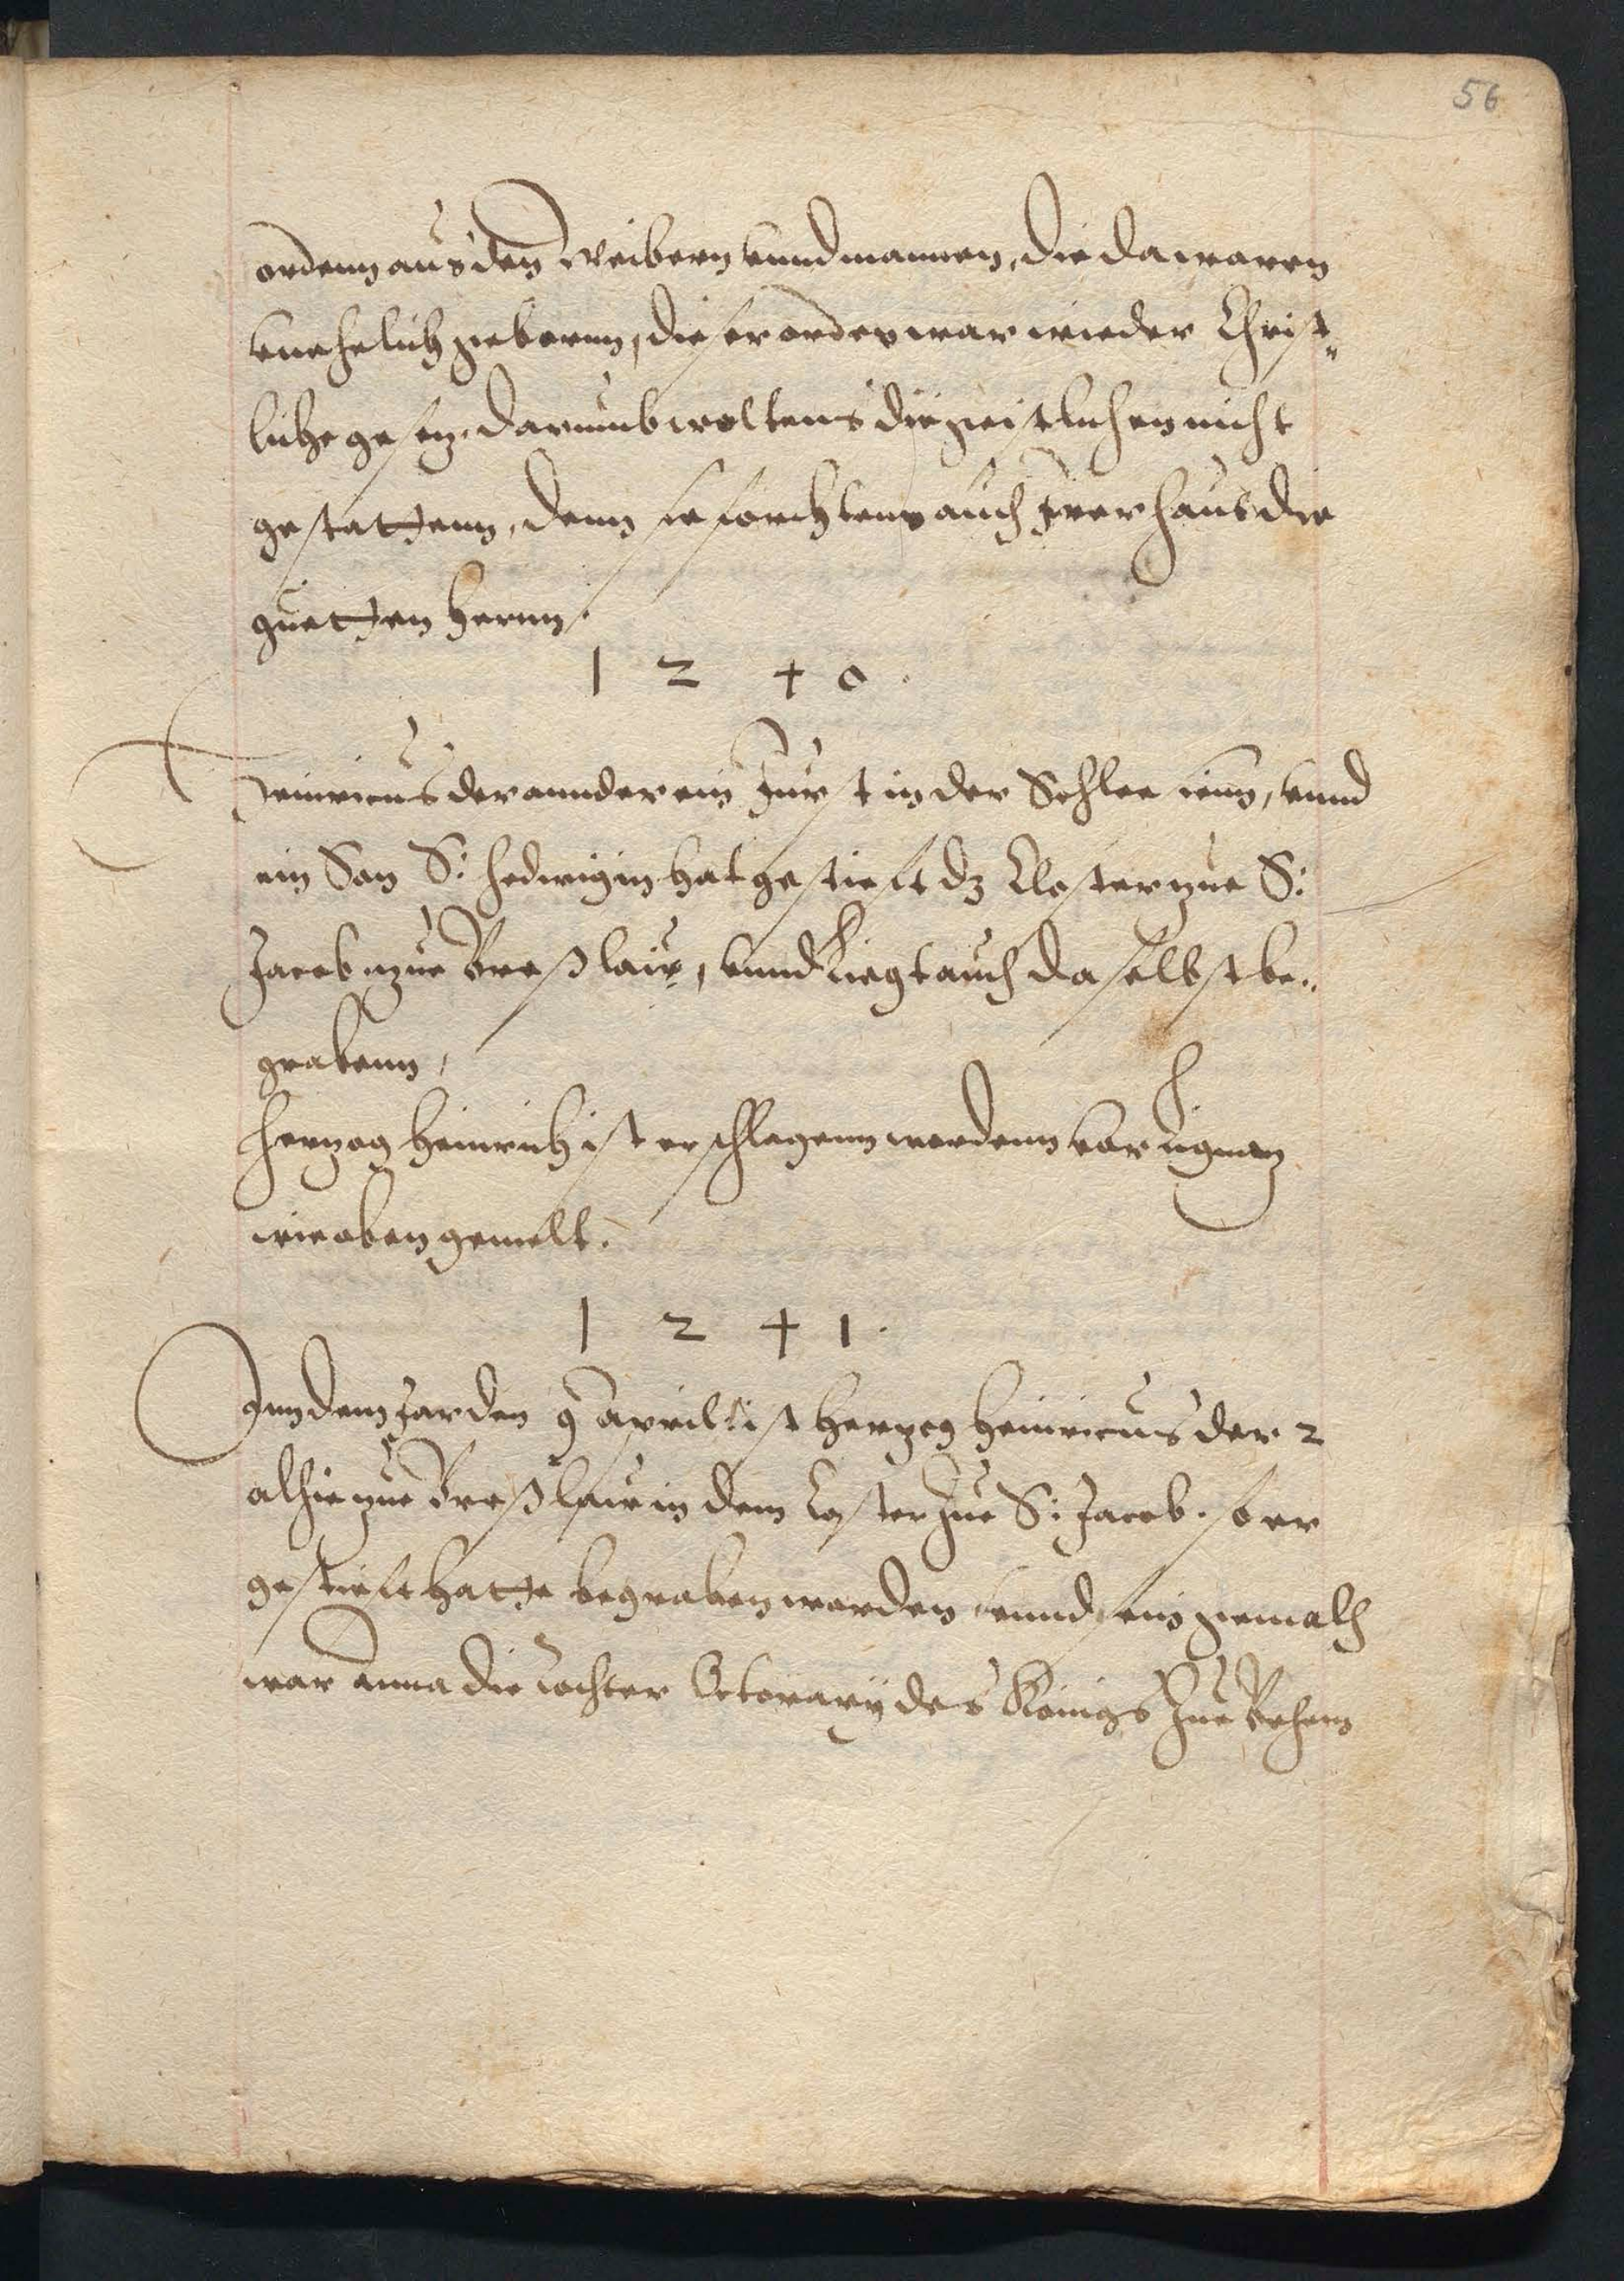 56
ordenn aus den Weibern vnnd mannen, die da waren
vnehelich geborenn, dieser orden war wieder Christ„
liche gesez, darumb woltens die geistlichen nicht
gestattenn, denn sie forchtens auch Irer haus die
guetten herrnn.
1 2 4 0.
Heinricus der annder ein Furst in der Schlesienn, vnnd
ein Son S: Hedwigin hat gestieft dz Closter zue S:
Jacob zue Breßlaw, vnnd liegt auch daselbst be„
grabenn,
Herzog Heinrich ist erschlagenn wordenn vor lignez
wie oben gemelt.
1 2 4 1.
Inn dem Jar den 9 Aprilis ist Herzog Heinricus der 2
alhie zue Breßlaw in dem Closter zue S: Jacob. so er
gestieft hatte begraben worden, vnnd sein gemalh
war Anna die tochter Octocary des Königs zue Behem